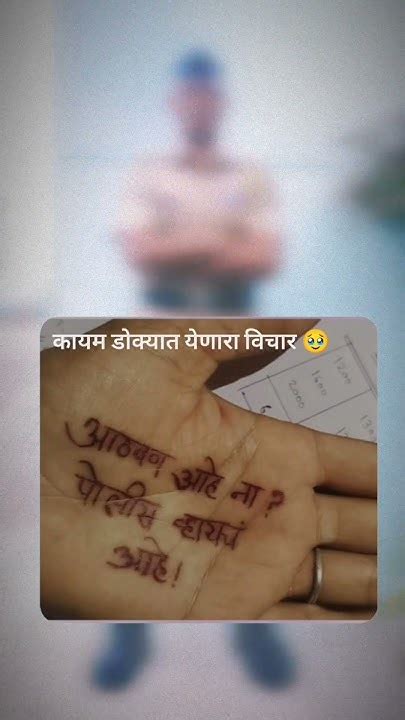 कायम डोक्यात येणारा विचार 🥹
आठवण आहे ना?
पोलीस व्हायचं
आहे!
1200
1600
2000